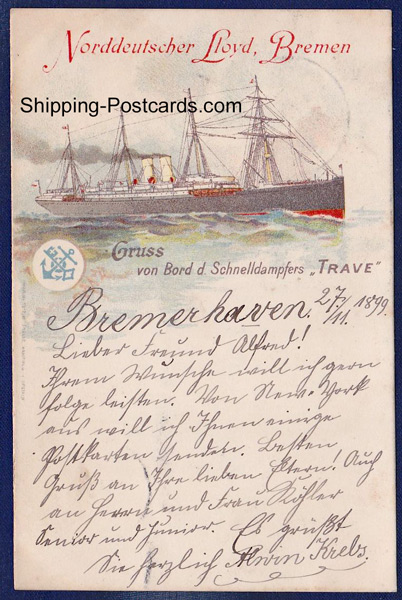 Norddeutscher Lloyd, Bremen
Shipping-Postcards.com
Gruss
von Bord d. Schnelldampfers „TRAVE"
Bremerhaven, 27/11. 1899.
Lieber Freund Alfred!
Ihrem Wunsche will ich gern
folge leisten. Von New-York
aus will ich Ihnen einige
Postkarten senden. Besten
Gruß an Ihre lieben Eltern! Auch
an Herrn und Frau Köhler
Senior und Junior. Es grüßt
Sie herzlich Alwin Krebs.